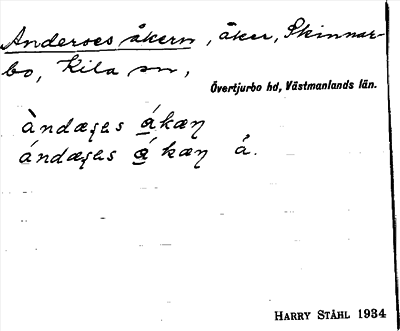 Anderses åkern, åker, Skinnar-
bo, Kila sn,
Övertjurbo hd, Västmanlands län.
àndæʂɛs åkæɳ
ándæʂɛs åkæɳ å.
HARRY STÅHL 1934